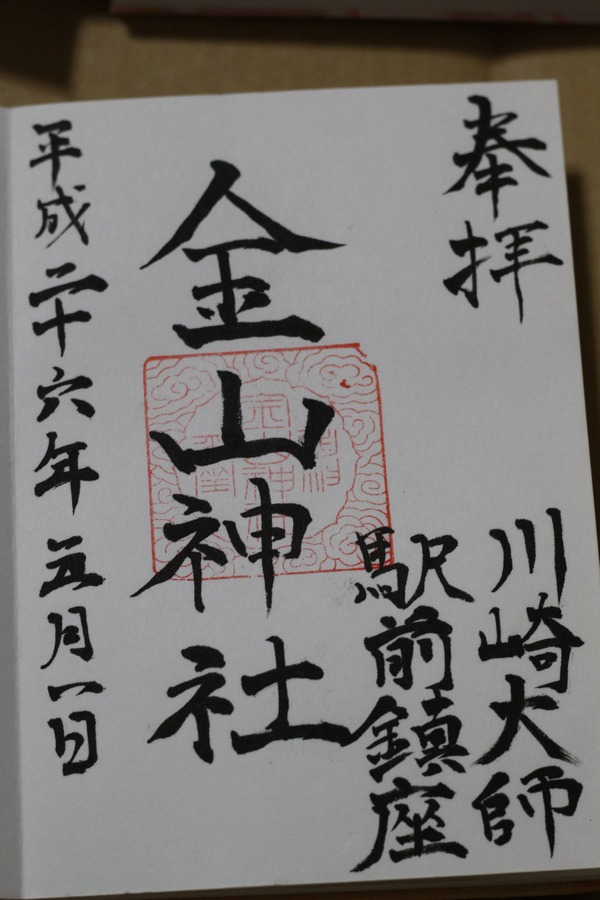 奉拝
川崎大師
駅前鎮座
金山神社
平成二十六年五月一日